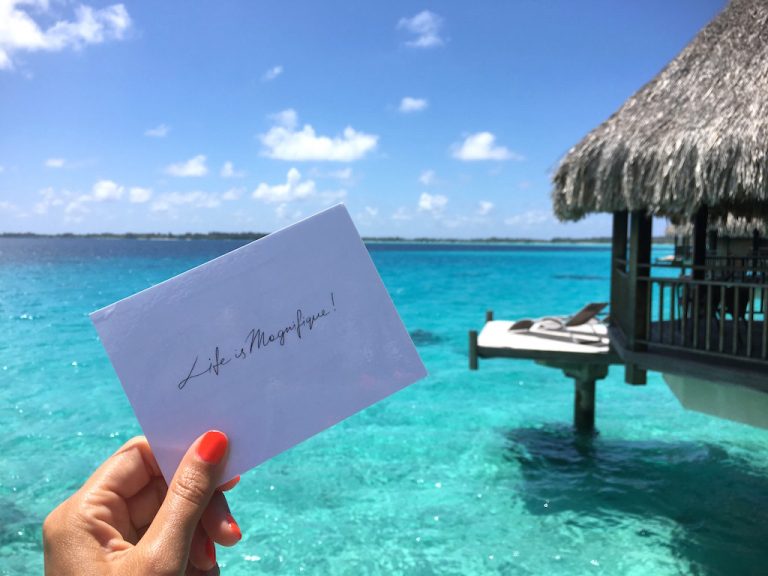 Life is Magnifique!